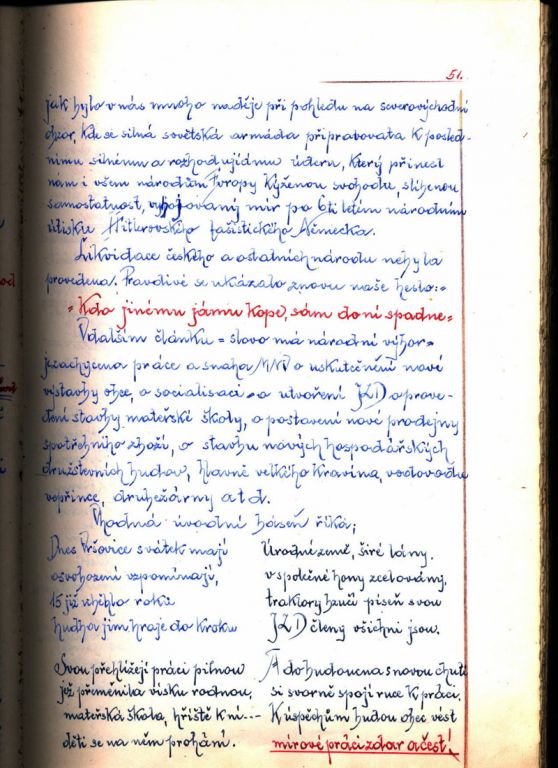 51.
jak bylo v nás mnoho naděje při pohledu na severovýchodní
obzor, kde se silná sovětská armáda připravovata k posled-
nímu silnému a rozhodujícímu úderu, který přinesl
nám i všem národům Evropy kýženou svobodu, slíbenou
samostatnost, vybojovaný mír po 6ti letém národním
útisku Hitlerovského fašistického Německa.
Likvidace českého a ostatních národu nebyla
provedena. Pravdivě se ukázalo znovu naše heslo:=
"Kdo jinému jámu kope, sám do ní spadne=
V dalším článku = slovo má národní výbor=
je zachycena práce a snaha MNV o uskutečnění nové
výstavby obce, o socialisaci = a utvoření JZD o prove-
dení stavby mateřské školy, o postavení nové prodejny
spotřebního zboží, o stavbu nových hospodářských
družstevních budov, hlavně velkého kravína, vodovodu
vepřince, drubežárny atd.
Vhodná úvodní báseň říká;
Dnes Vršovice svátek mají
osvobození vzpomínají,
15 již vběhlo roku
hudba jim hraje do kroku
Svou přehlížejí práci pilnou
jež přeměnila vísku rodnou,
mateřská škola, hřiště k ní---
děti se na něm prohání.
Úrodné země, širé lány.
v společné hony zcelovány,
traktory hzučí píseň svou
JZD členy všichni jsou.
A do budoucna s novou chutí
si svorně spojí ruce k práci.
K úspěchům budou obec vést
mírové práci zdar a čest!